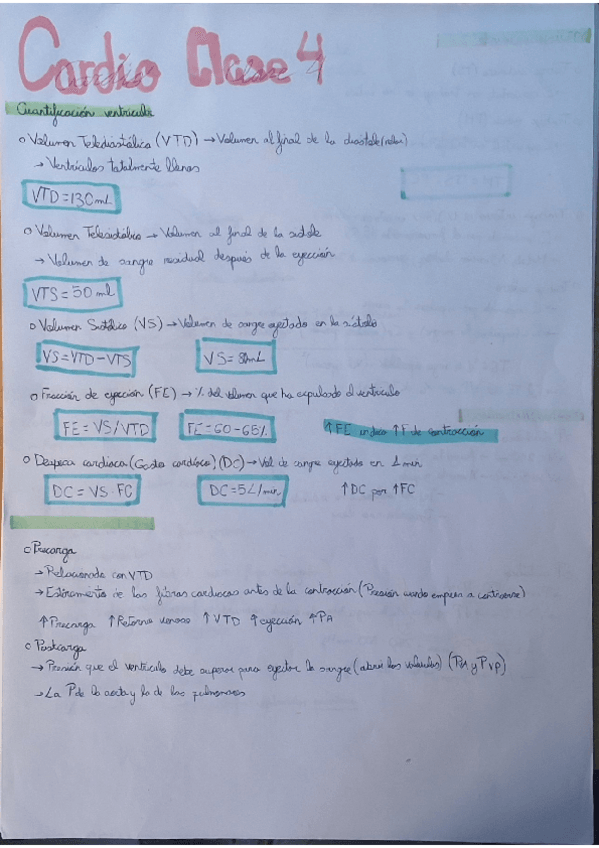 Cardio Clase 4
Cuantificación ventricular
o Volumen Telediastólico (VTD) → Volumen al final de la diastole (relax)
→ Ventrículos totalmente llenos
VTD = 130 mL
o Volumen Telesistólico → Volumen al final de la sístole
→ Volumen de sangre residual después de la eyección
VTS = 50 ml
o Volumen Sistólico (VS) → Volumen de sangre eyectado en la sístole
VS = VTD - VTS VS = 80mL
o Fracción de eyección (FE) → % del volumen que ha expulsado el ventrículo
FE = VS/VTD FE = 60-65% ↑FE indica ↑F de contracción
o Despesa cardíaca (Gasto cardíaco) (DC) → Vol de sangre eyectado en 1 min
DC = VS · FC DC = 5L/min ↑DC por ↑FC
o Precarga
→ Relacionada con VTD
→ Estiramiento de las fibras cardíacas antes de la contracción (Presión cuando empieza a contraerse)
↑ Precarga ↑ Retorno venoso ↑ VTD ↑ eyección ↑ PA
o Postcarga
→ Presión que el ventrículo debe superar para eyectar la sangre (abrir las válvulas) (PA y PVP)
→ La P de la aorta y la de las pulmonares